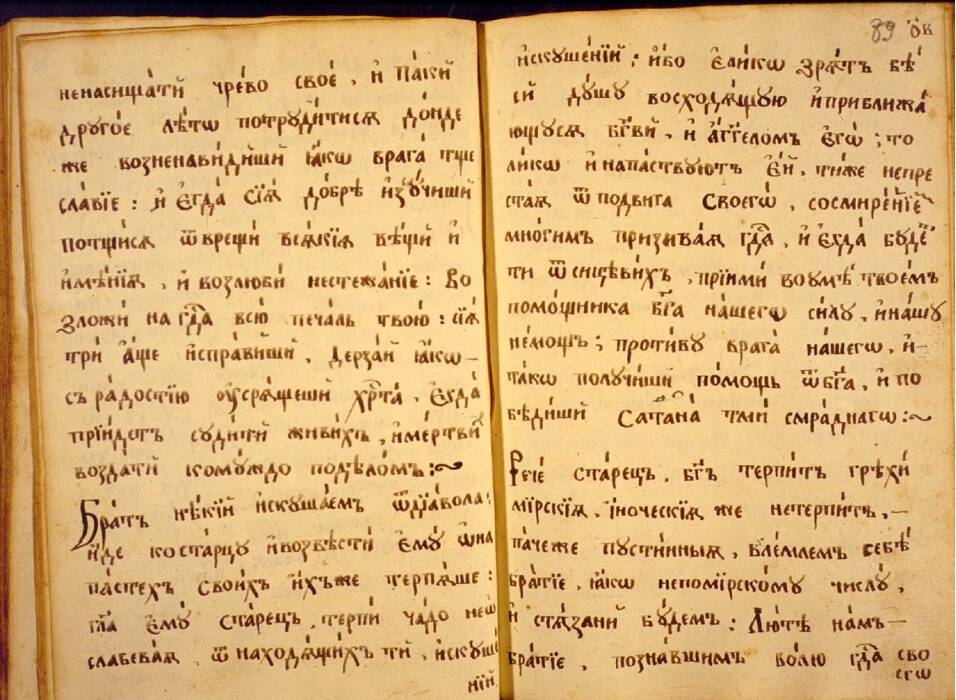 ненасища́ти чре́во своѐ, и҆ па́ки
друго́е лѣ́тѡ потруди́тисѧ до́нде
же возненави́диши ꙗ҆́кѡ врага̀ тще
сла́вїе: и҆ є҆гда̀ сїѧ̑ до́брѣ и҆зꙋ́чиши
потщи́сѧ ѿврещѝ всѧ́кїѧ вє́щи и҆
и҆мѣ́нїѧ, и҆ возлюбѝ нестежа́нїе: Во
зложѝ на гдⷭ҇а всю̀ печа́ль твою̀: сїѧ̑
трѝ а҆́ще и҆спра́виши, дерза́й ꙗ҆́кѡ
съ ра́достїю ᲂу҆срѧ́щеши хрⷭ҇та̀, є҆гда̀
прїи́детъ суди́ти живи́хъ, и҆ ме́ртви
возда́ти кому́ждо подѣлѡ́мъ:~
Бра́тъ нѣ́кїй и҆скуша́емъ ѿ дїа́вола:
и҆́де ко ста́рцу и҆ возвѣстѝ є҆мꙋ̀ ѡ҆ на
па́стехъ свои́хъ и҆́хъже терпѧ́ше:
гл҃а є҆мꙋ̀ ста́рецъ, терпѝ ча́до не ѡ҆
слабева́ѧ, ѿ находѧ́щихъ тѝ, и҆скуше́
нїй
89 ѻ҆в
и҆скуше́нїй; и҆́бо є҆ли́кѡ зрѧ́тъ бѣ́
си ду́шу восходѧ́щую и҆ приближа́
ющусѧ бг҃ви, и҆ а҆́гг҃еломъ є҆гѡ̀; то
ли́кѡ и҆ напа́ствуютъ є҆́й, ти́же непре
ста́ѧ ѿ по́двига своегѡ̀, со смире́нїе
мно́гимъ призива́ѧ гдⷭ҇а, и҆ є҆гда̀ бу́де
ти ѿ сицеви́хъ, прїимѝ во умѣ̀ твое́мъ
помо́щника бг҃а на́шегѡ си́лу, и҆ на́шу
не́мощь; проти́ву врага̀ на́шегѡ, и҆
та́кѡ полу́чиши по́мощь ѿ бг҃а, и҆ по
бѣ́диши сатана̀ тмѝ смра́днагѡ:~
Речѐ ста́рецъ, бг҃ъ те́рпитъ грѣхѝ
мїрскїѧ, і҆но́ческїѧ же нете́рпитъ,
па́че же пусти́нныѧ, вле́млемъ себѣ̀
бра́тїе, ꙗ҆́кѡ непомїрско́му числу̀,
и҆ стѧ́зани бу́демъ: Лю́тѣ на́мъ
бра́тїе, позна́вшимъ во́лю гдⷭ҇а сво
егѡ̀